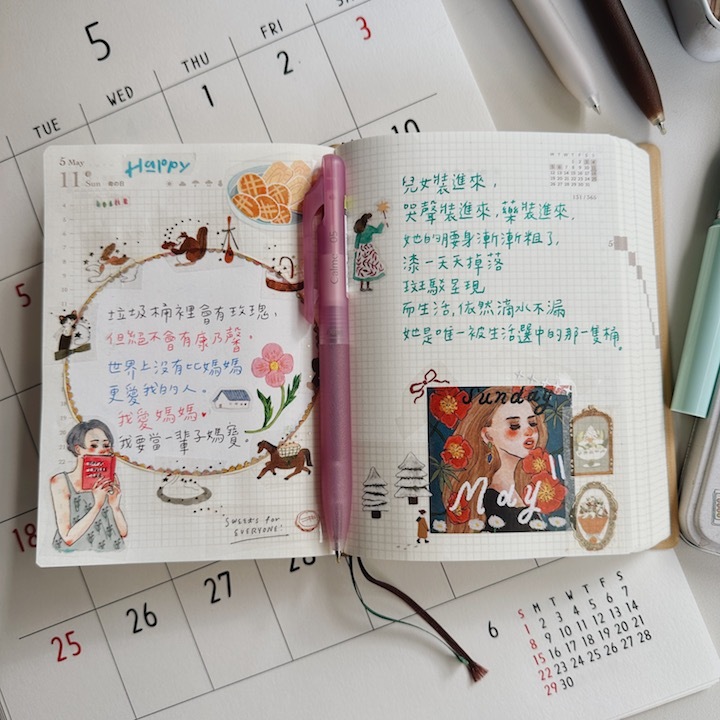 5
TUE
WED
THU
FRI
1
2
3
10
5 May
11 Sun 母の日
Happy
垃圾桶裡會有玫瑰，
但絕不會有康乃馨。
世界上沒有比媽媽
更愛我的人。
我愛媽媽♥
我要當一輩子媽寶。
SWEETS FOR
EVERYONE!
兒女裝進來，
哭聲裝進來，藥裝進來，
她的腰身漸漸粗了，
漆一天天掉落
斑駁呈現
而生活，依然滴水不漏
她是唯一被生活選中的那一隻桶。
131/365
5
Sunday
11
May
18
25
26
27
28
6
S M T W T F S
1 2 3 4 5 6 7
8 9 10 11 12 13 14
15 16 17 18 19 20 21
22 23 24 25 26 27 28
29 30